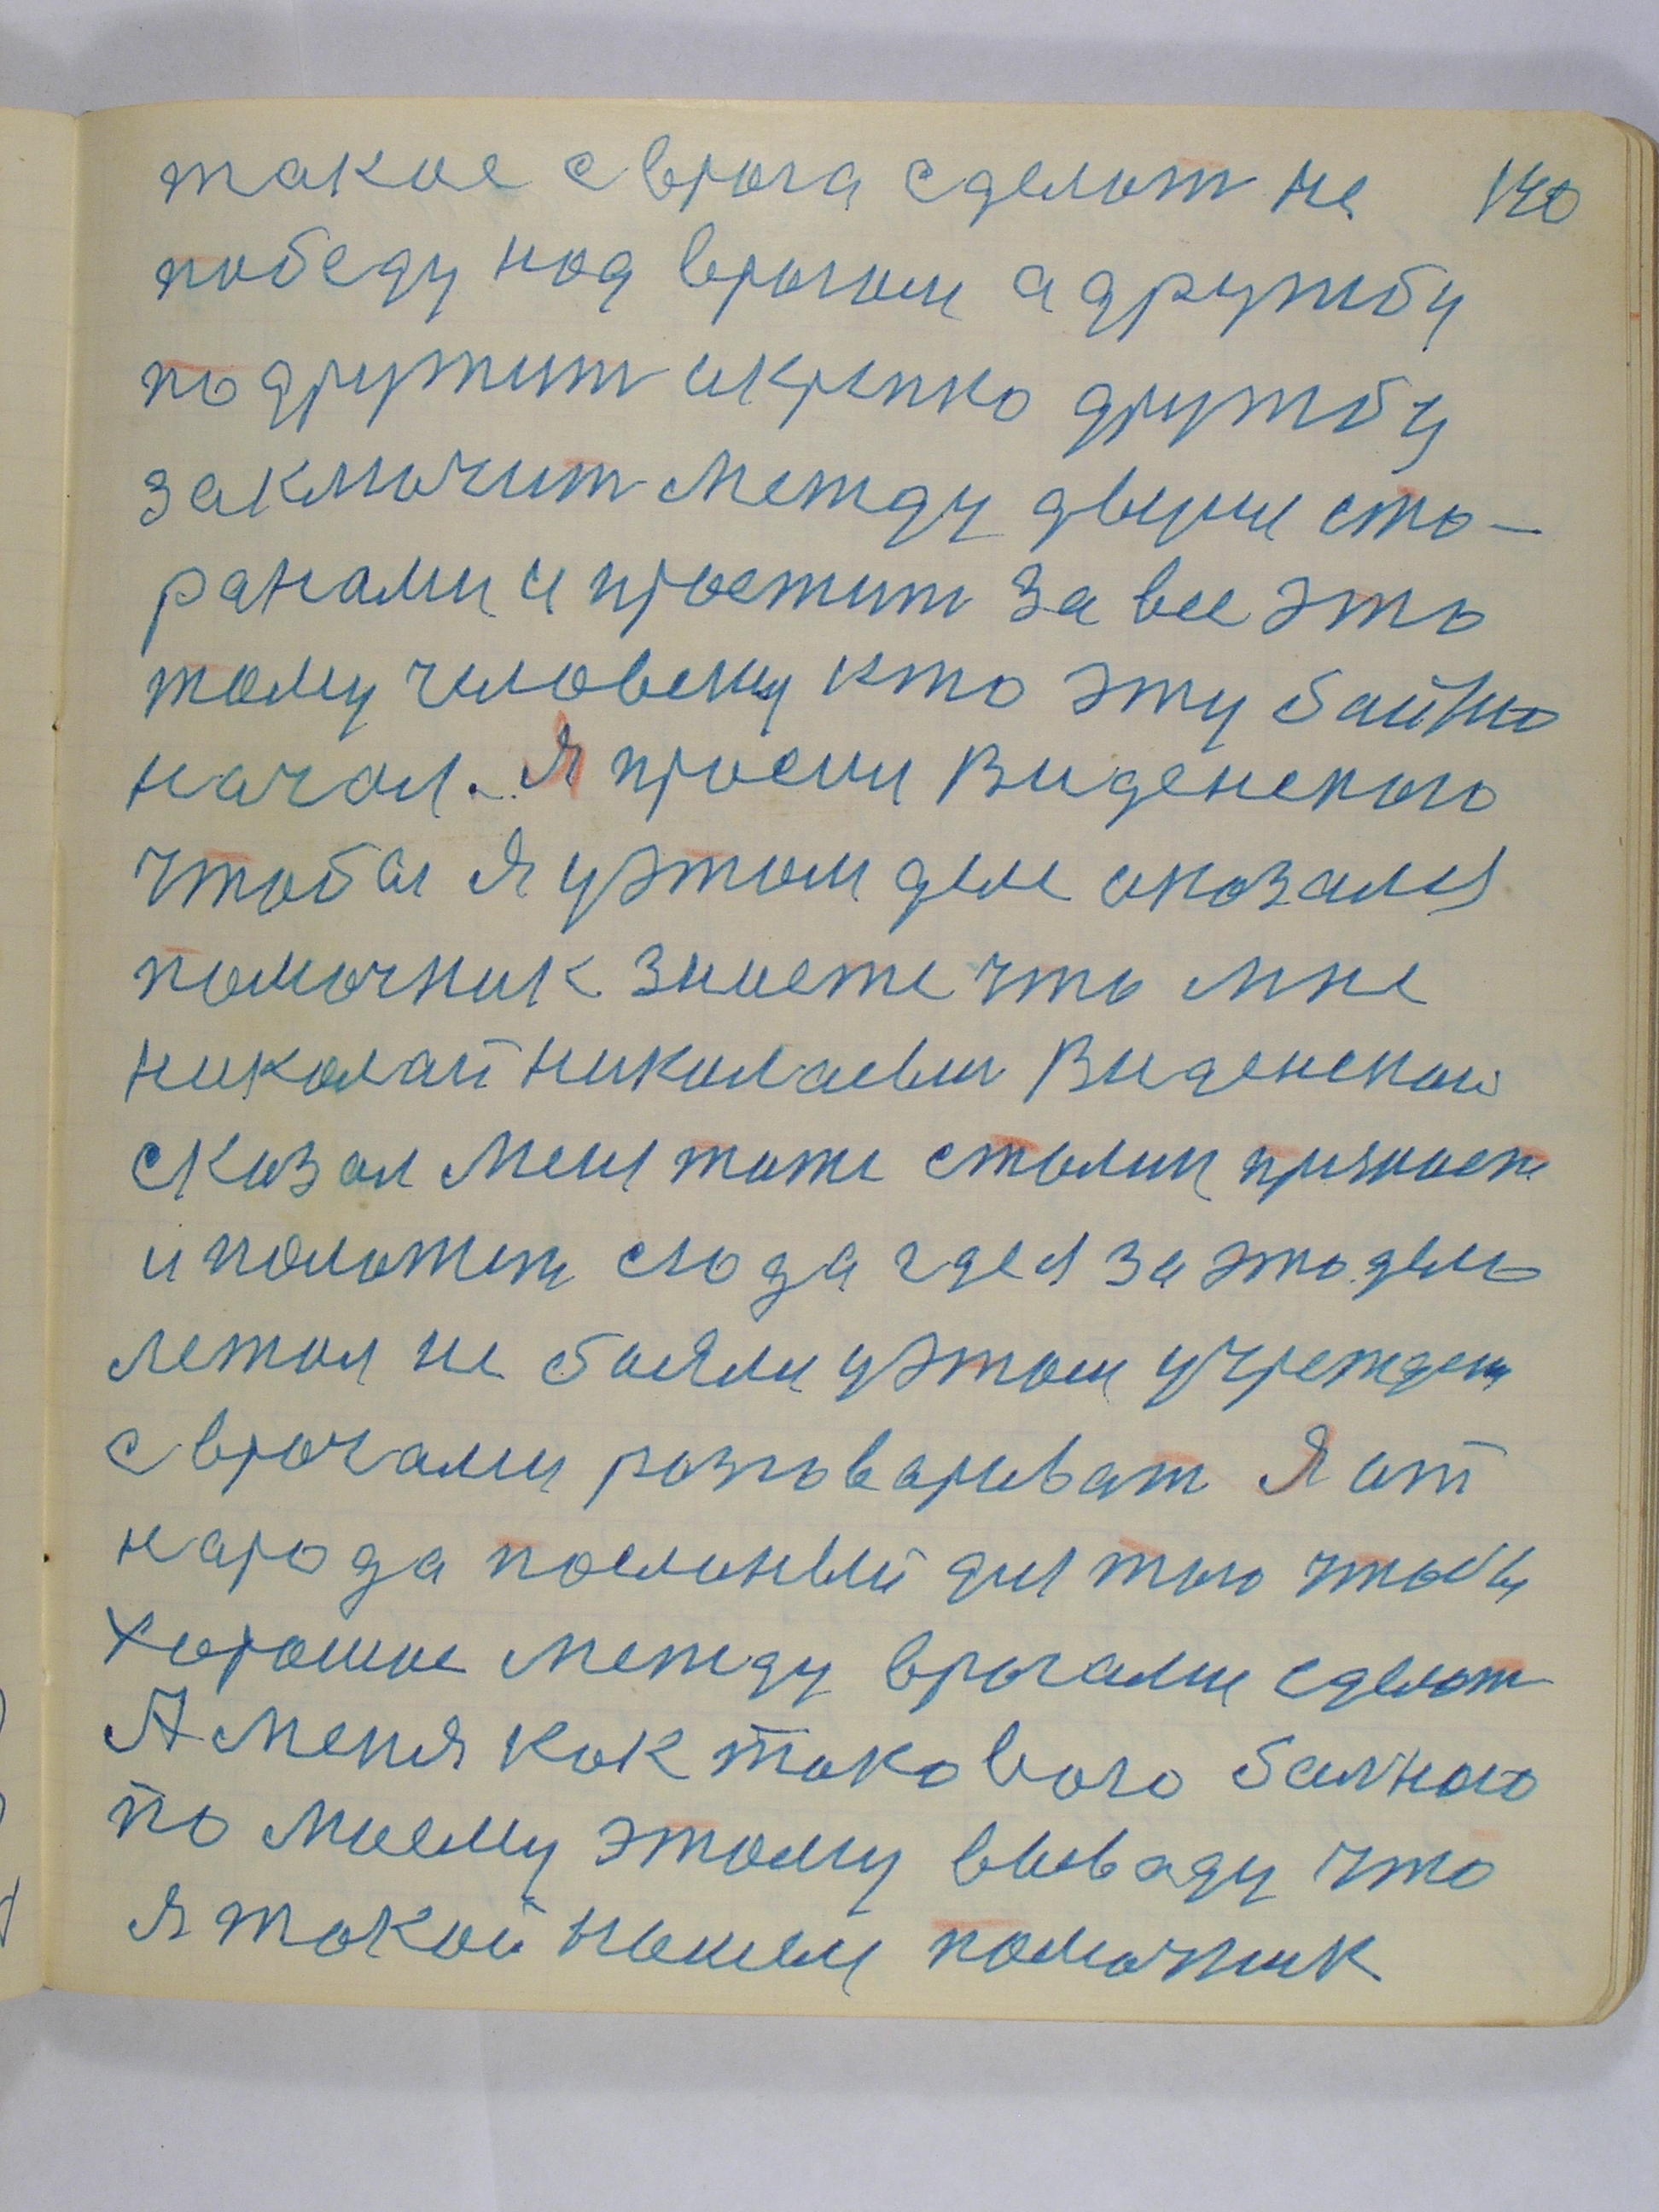 такое с врога сделат не 140
победу над врогом а дружбу
подружит и крепко дружбу
заключит между двумя сто-
ранами и простит за все это
тому человеку кто эту байню
начал. Я просил Виденского
чтобы я у этом деле оказался
помочник знаете что мне
николай николаевич Виденский
сказал меня тоже сталин
и положит сюда где я за это дело
лежал не бояли у этом учрежден
с врочами разговариват Я от
народа посланый для того чтобы
хорошое между врогами сделат
А меня как токового балного
по моему этому вываду что
я такой нашем помочник